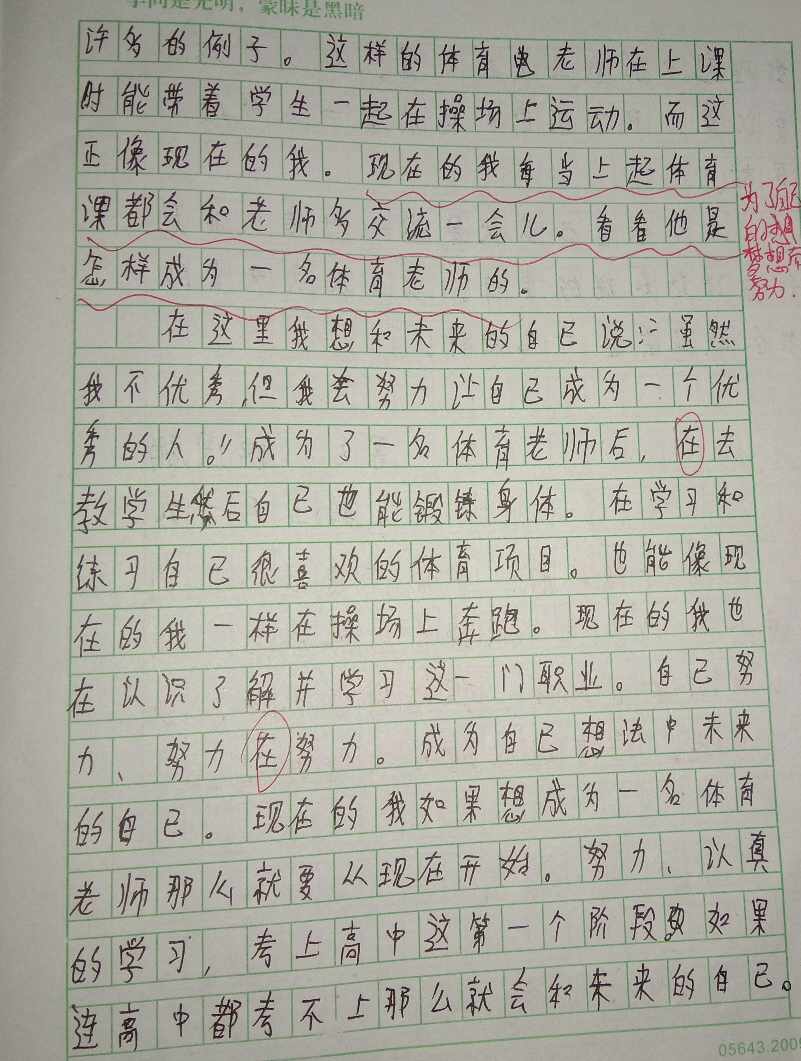 学问是光明，蒙昧是黑暗
许多的例子。这样的体育老师在上课
时能带着学生一起在操场上运动。而这
正像现在的我。现在的我每当上起体育
课都会和老师多交流一会儿。看看他是
怎样成为一名体育老师的。
为了自己
的梦想在
努力.
在这里我想和未来的自己说:“虽然
我不优秀,但我会努力让自己成为一个优
秀的人。”成为了一名体育老师后,在去
教学生然后自己也能锻铼身体。在学习和
练习自己很喜欢的体育项目。也能像现
在的我一样在操场上奔跑。现在的我也
在认识了解并学习这一门职业。自己努
力、努力在努力。成为自己想法中未来
的自己。现在的我如果想成为一名体育
老师那么就要从现在开始。努力、以真
的学习,考上高中这第一个阶段如果
连高中都考不上那么就会和未来的自己。
05643.200